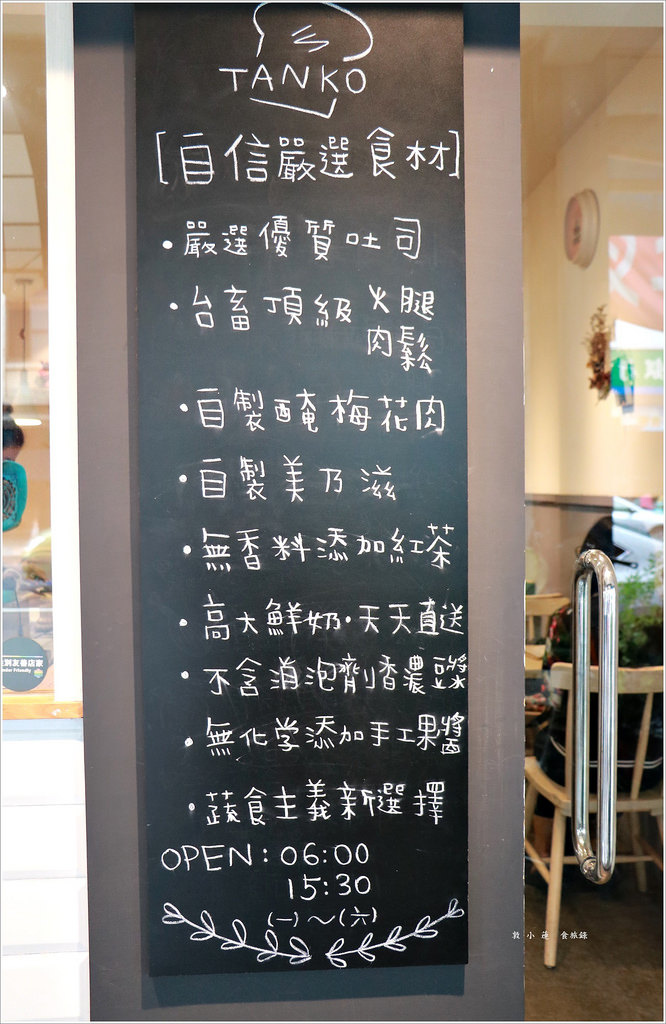 TANKO
[自信嚴選食材]
• 嚴選優質吐司
• 台畜頂級火腿
肉鬆
• 自製醃梅花肉
• 自製美乃滋
• 無香料添加紅茶
• 高大鮮奶·天天直送
• 不含消泡劑香濃豆漿
• 無化学添加手工果醬
• 蔬食主義新選擇
OPEN: 06:00
15:30
(一)~(六)
友善店家
敦小蓮 食旅錄